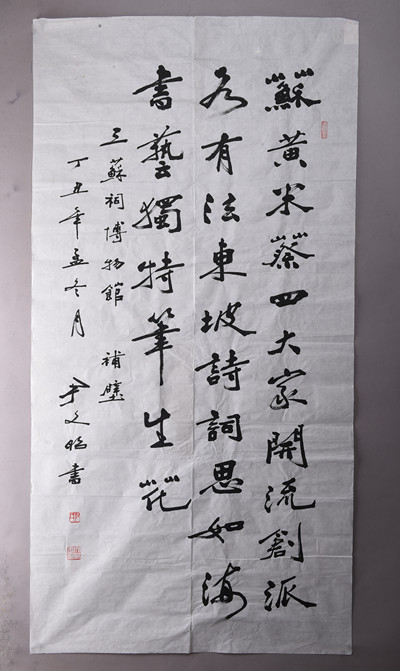 蘇黃米蔡四大家開流創派
各有法東坡詩詞思如海
書藝獨特筆生花
三蘇祠博物館 補壁
丁丑年孟冬月 尹文 書